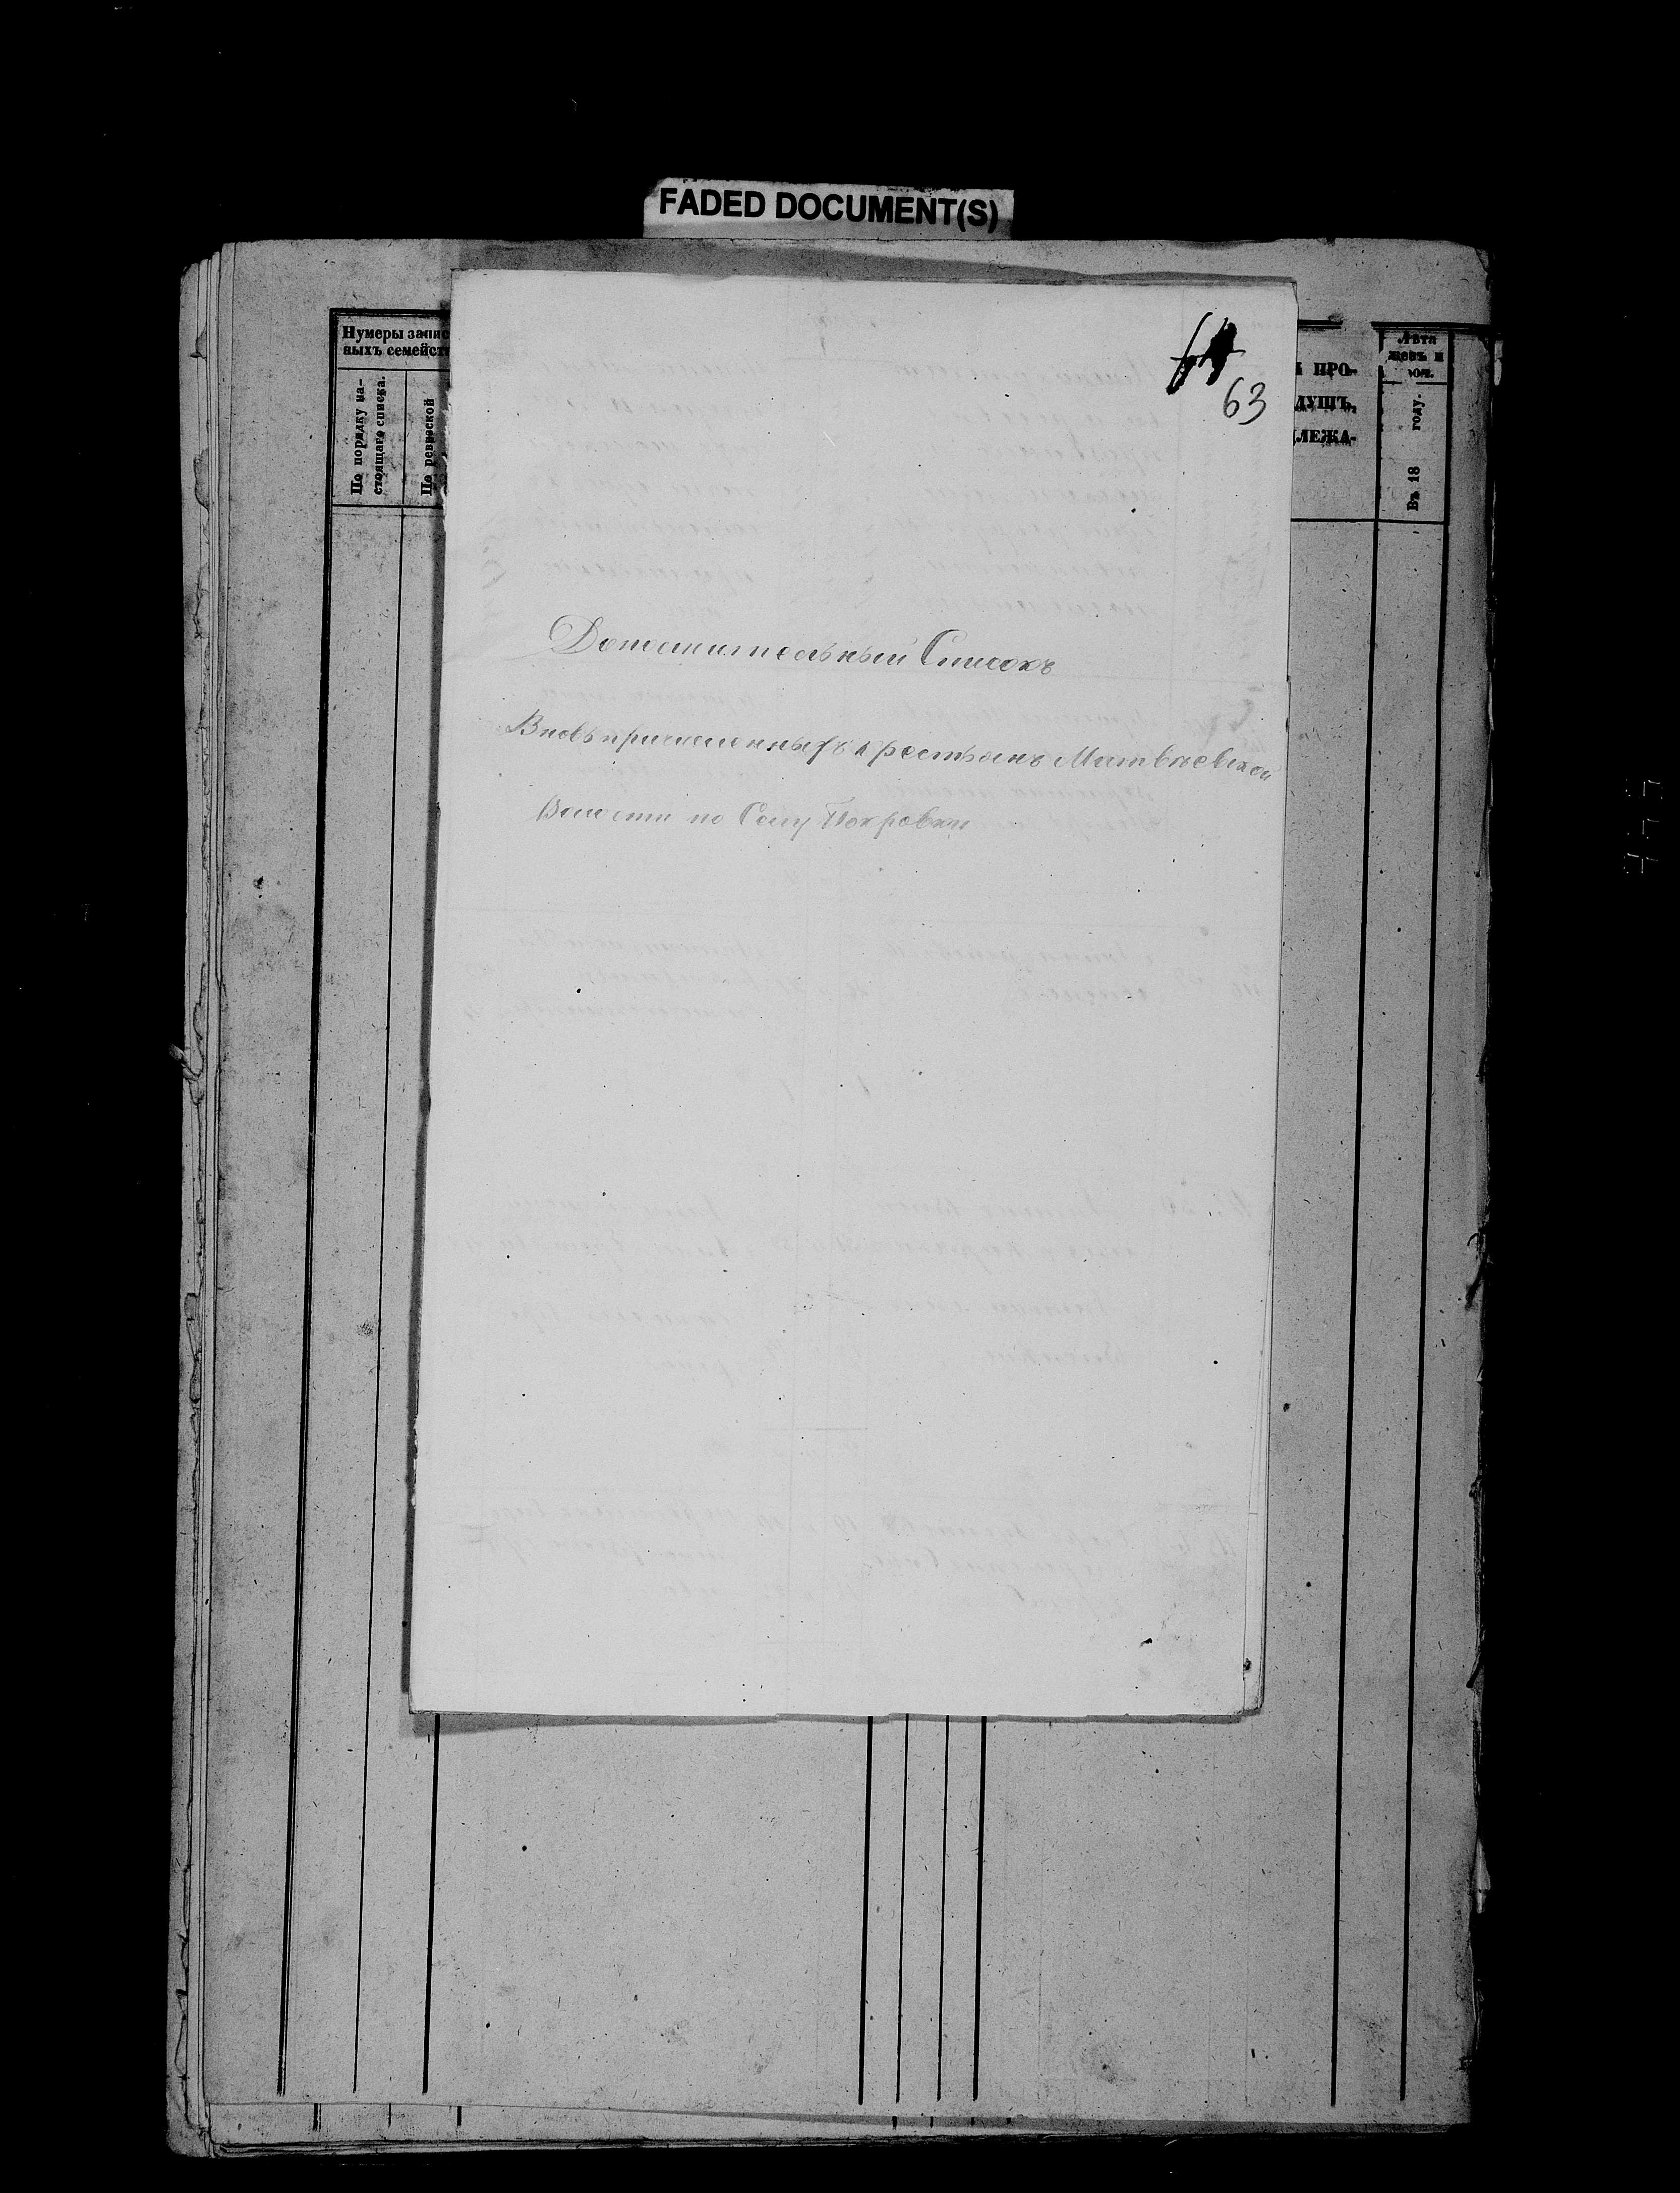 FADED DOCUMENT(S)
63
Нумеры запис
ныхъ семейст
По порядку на-
стоящаго списка.
По ревизской
ПРО-
ДУШЪ,
ЛЕЖА-
Лѣта
году.
Въ 18
Дополнительный Списокъ
Вновь причисленныхъ крестьянъ Матвѣевской
Волости по Селу Покровки